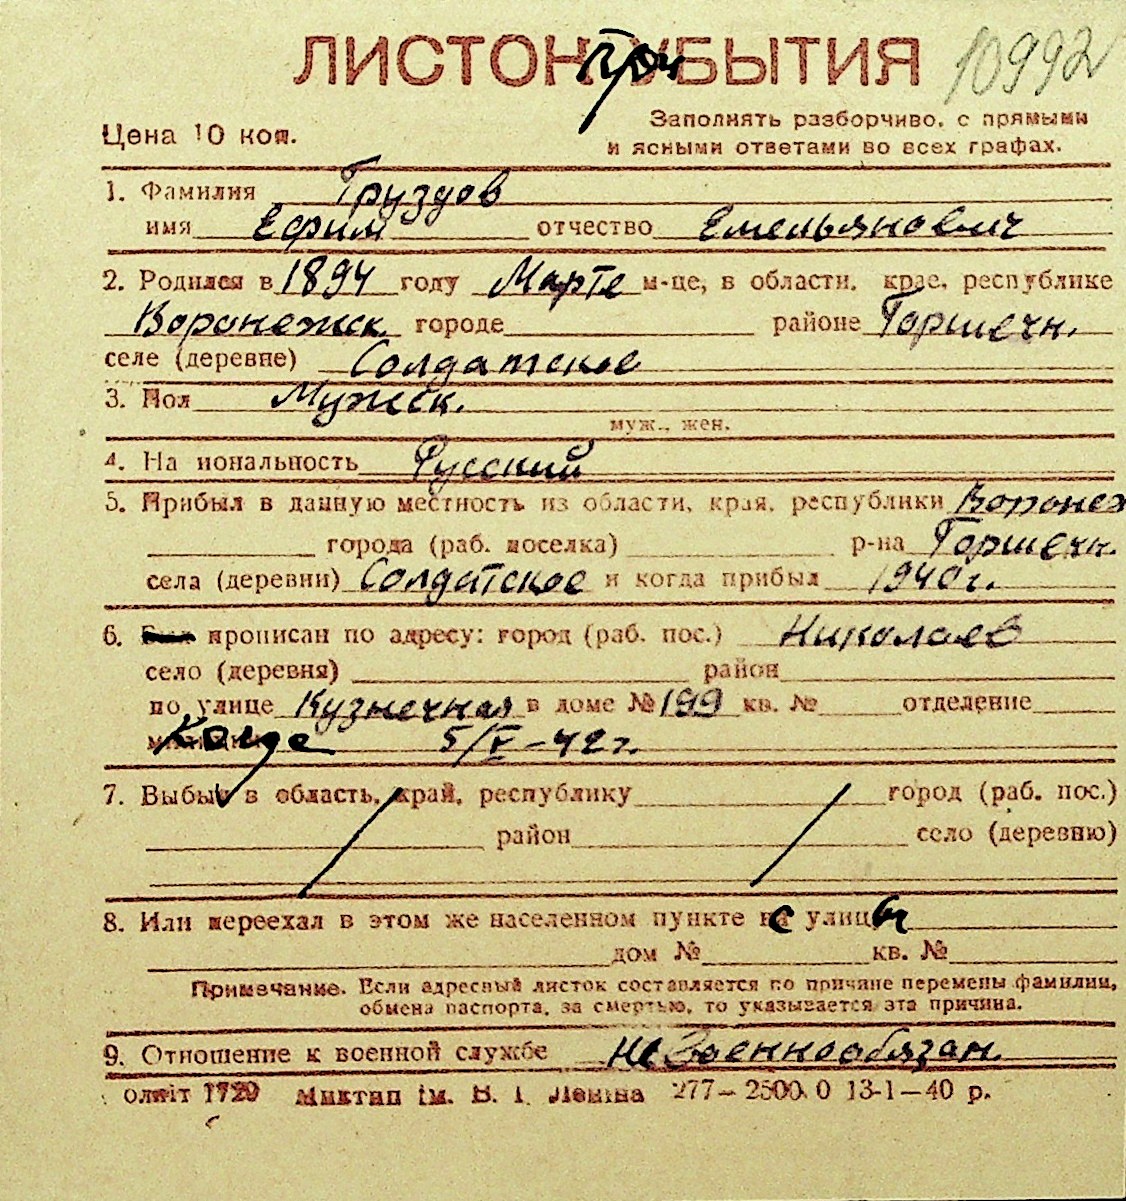 ЛИСТОК ПРИБЫТИЯ 10992
Заполнять разборчиво, с прямыми
Цена 10 коп.
и ясными ответами во всех графах.
1. Фамилия Груздов
имя Ефим отчество Емельянович
2. Родился в 1894 году Марте м-це, в области, крае, республике
Воронежск. городе районе Горшечн.
селе (деревне) Солдатское
3. Пол Мужск.
муж., жен.
4. На иональность Русский
5. Прибыл в данную местность из области, края, республики Воронеж
города (раб. поселка) р-на Горшечн.
села (деревни) Солдатское и когда прибыл 1940 г.
6. прописан по адресу: город (раб. пос.) Николаев
село (деревня) район
по улице Кузнечная в доме № 199 кв. № отделение
Когда 5/V-42 г.
7. Выбыл в область, край, республику город (раб. пос.)
район село (деревню)
8. Или переехал в этом же населенном пункте с улицы
дом № кв. №
Примечание. Если адресный листок составляется по причине перемены фамилии,
обмена паспорта, за смертью, то указывается эта причина.
9. Отношение к военной службе Не военнообязан.
1720 Миктип ім. В. І. Леніна 277—2500.0 13-1—40 р.